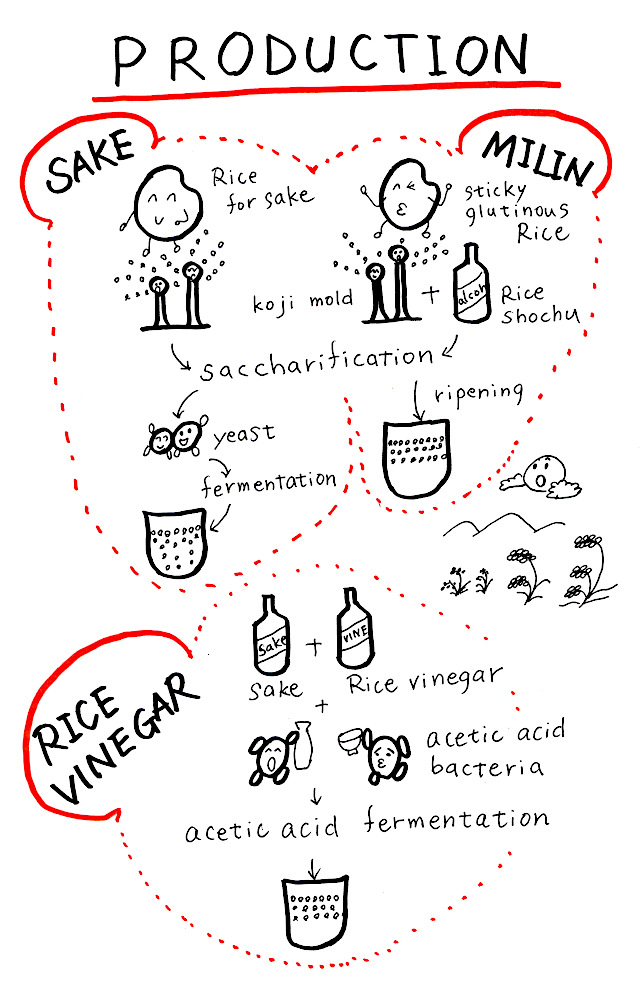 PRODUCTION
SAKE
MILIN
Rice
for sake
sticky
glutinous
Rice
koji mold
+
alcoh
Rice
shochu
saccharification
ripening
yeast
fermentation
RICE
VINEGAR
sake
+
VINE
sake
Rice vinegar
+
acetic acid
bacteria
acetic acid fermentation